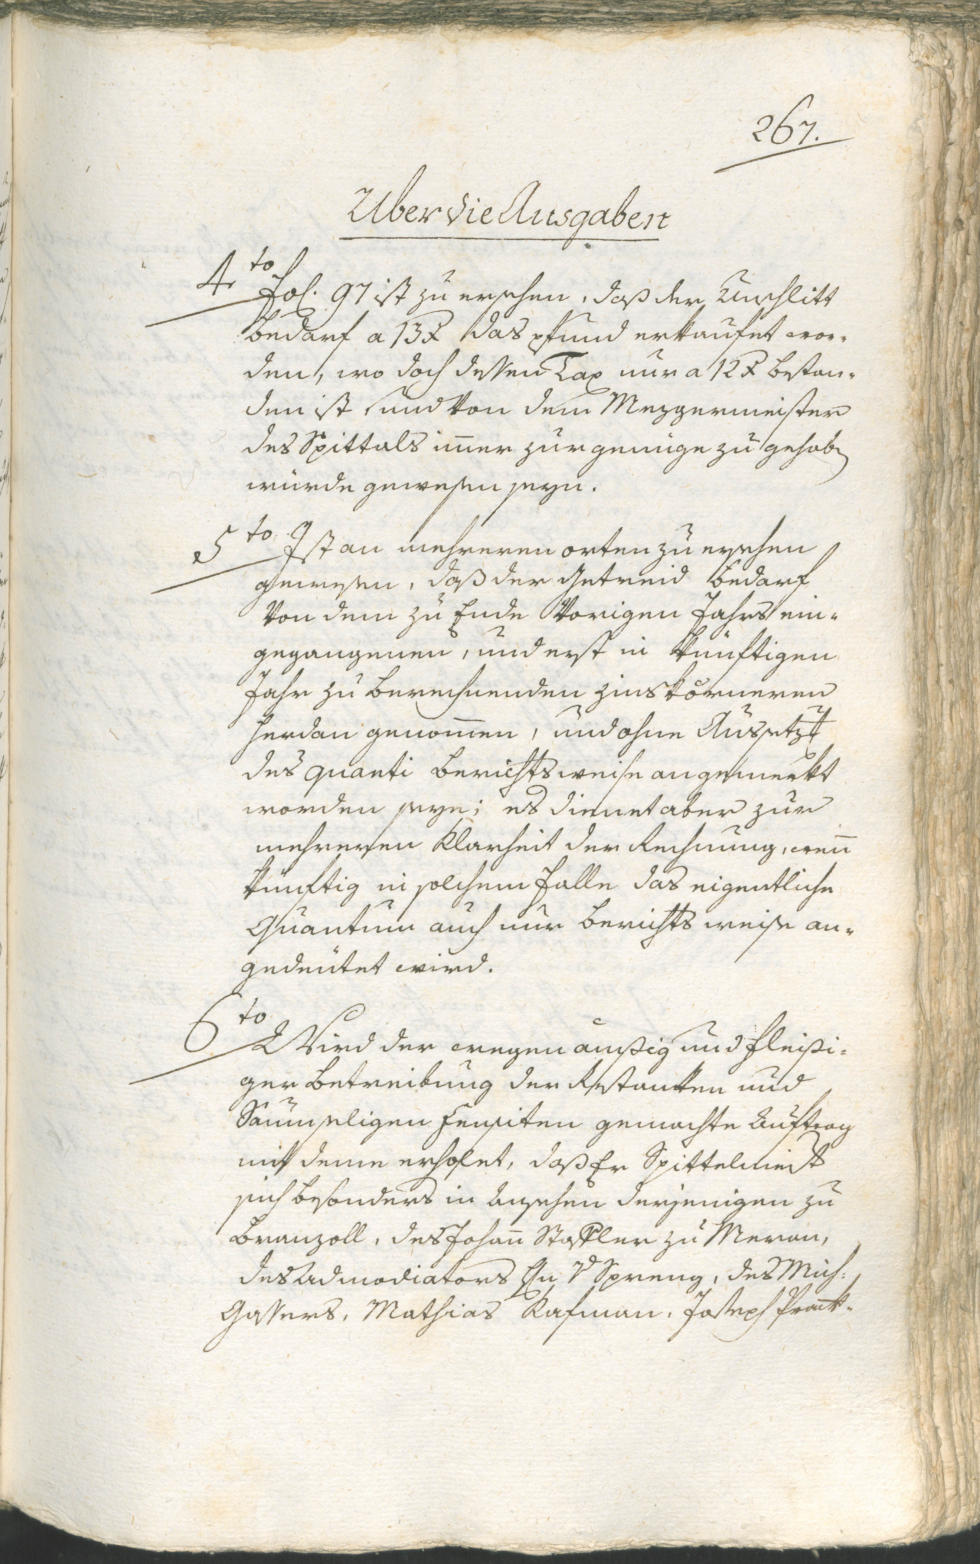 267.
Uber die Ausgaben
4to Fol. 97 ist zu ersehen, daß der Unschlitt
bedarf a 13 x das pfund erkaufet wor-
den, wo doch dessen Tax nur a 12 x bestan-
den ist und von dem Mezgermeister
des Spittals im̅er zur genüge zu gehabt
würde gewesen seyn.
5to Ist an mehreren orten zu ersehen
gewesen, daß der Getreid bedarf
von dem zu Ende vorigen Jahrs ein-
gegangenen, und erst in künftigen
Jahr zu berechnenden zinskörneren
herdan genom̅en, und ohne Aussetzung
des quanti berichtsweise angemerkt
worden seye; es dienet aber zur
mehreren Klarheit der Rechnung, wen̅
künftig in solchem Falle das eigentliche
Quantum auch nur berichts weise an-
gedeutet wird.
6to Wird der wegen und fleißi-
ger betreibung der Restanten und
Saumseligen Censiten gemachte Auftrag
mit deme erholet, daß Er Spittelmeister
sich besonders in Ansehen derjenigen zu
Branzoll, des Johan̅ Staffler zu Meran,
des Admodiators Spreng, des Mich:
Gassers, Mathias Kafman, Joseph